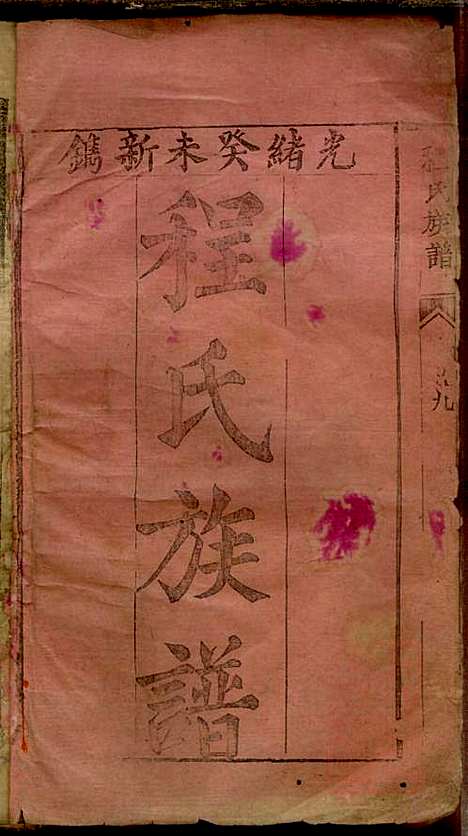 光緒癸未新鐫
程氏族譜
程氏族譜
九